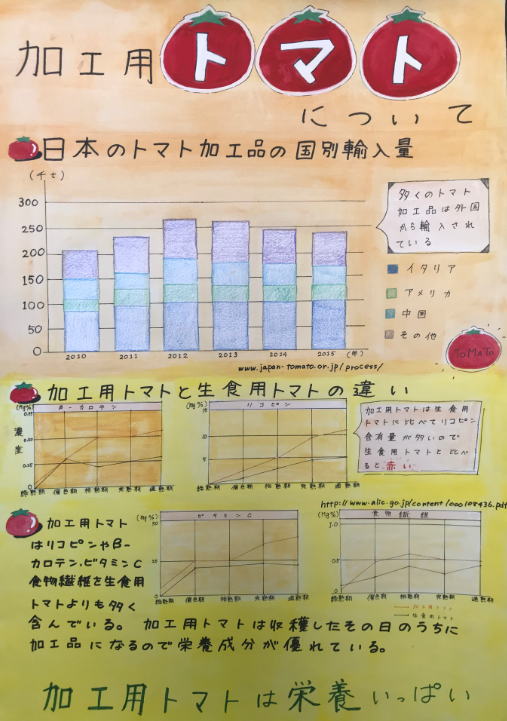 加工用トマト
について
日本のトマト加工品の国別輸入量
(千t)
300
250
200
150
100
50
0
2010 2011 2012 2013 2014 2015 (年)
多くのトマト
加工品は外国
から輸入され
ている
イタリア
アメリカ
中国
その他
TOMATO
www.japan-tomato.or.jp/process/
加工用トマトと生食用トマトの違い
(mg%)
濃度
β-カロテン
リコピン
加工用トマトは生食用
トマトに比べてリコピン
含有量が多いので
生食用トマトと比べ
ると赤い
加工用トマト
はリコピンやβ-
カロテン、ビタミンC
食物繊維を生食用
トマトよりも多く
含んでいる。加工用トマトは収穫したその日のうちに
加工品になるので栄養成分が優れている。
(mg%)
ビタミンC
食物繊維
加工用トマト
生食用トマト
加工用トマトは栄養いっぱい